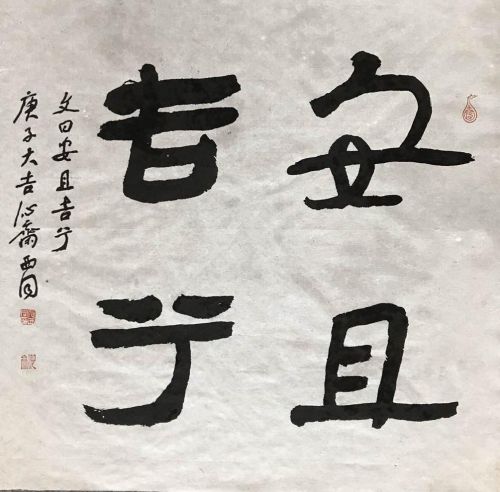 安且
吉兮
文曰安且吉兮
庚子大吉心齋